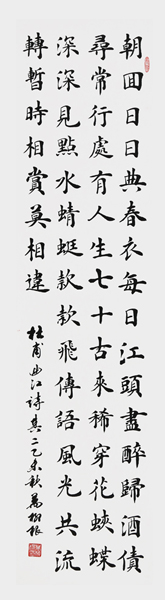 朝囬日日典春衣每日江頭盡醉歸酒債
尋常行處有人生七十古來稀穿花蛺蝶
深深見點水蜻蜓款款飛傳語風光共流
轉暫時相賞莫相違
杜甫曲江詩其二乙未秋